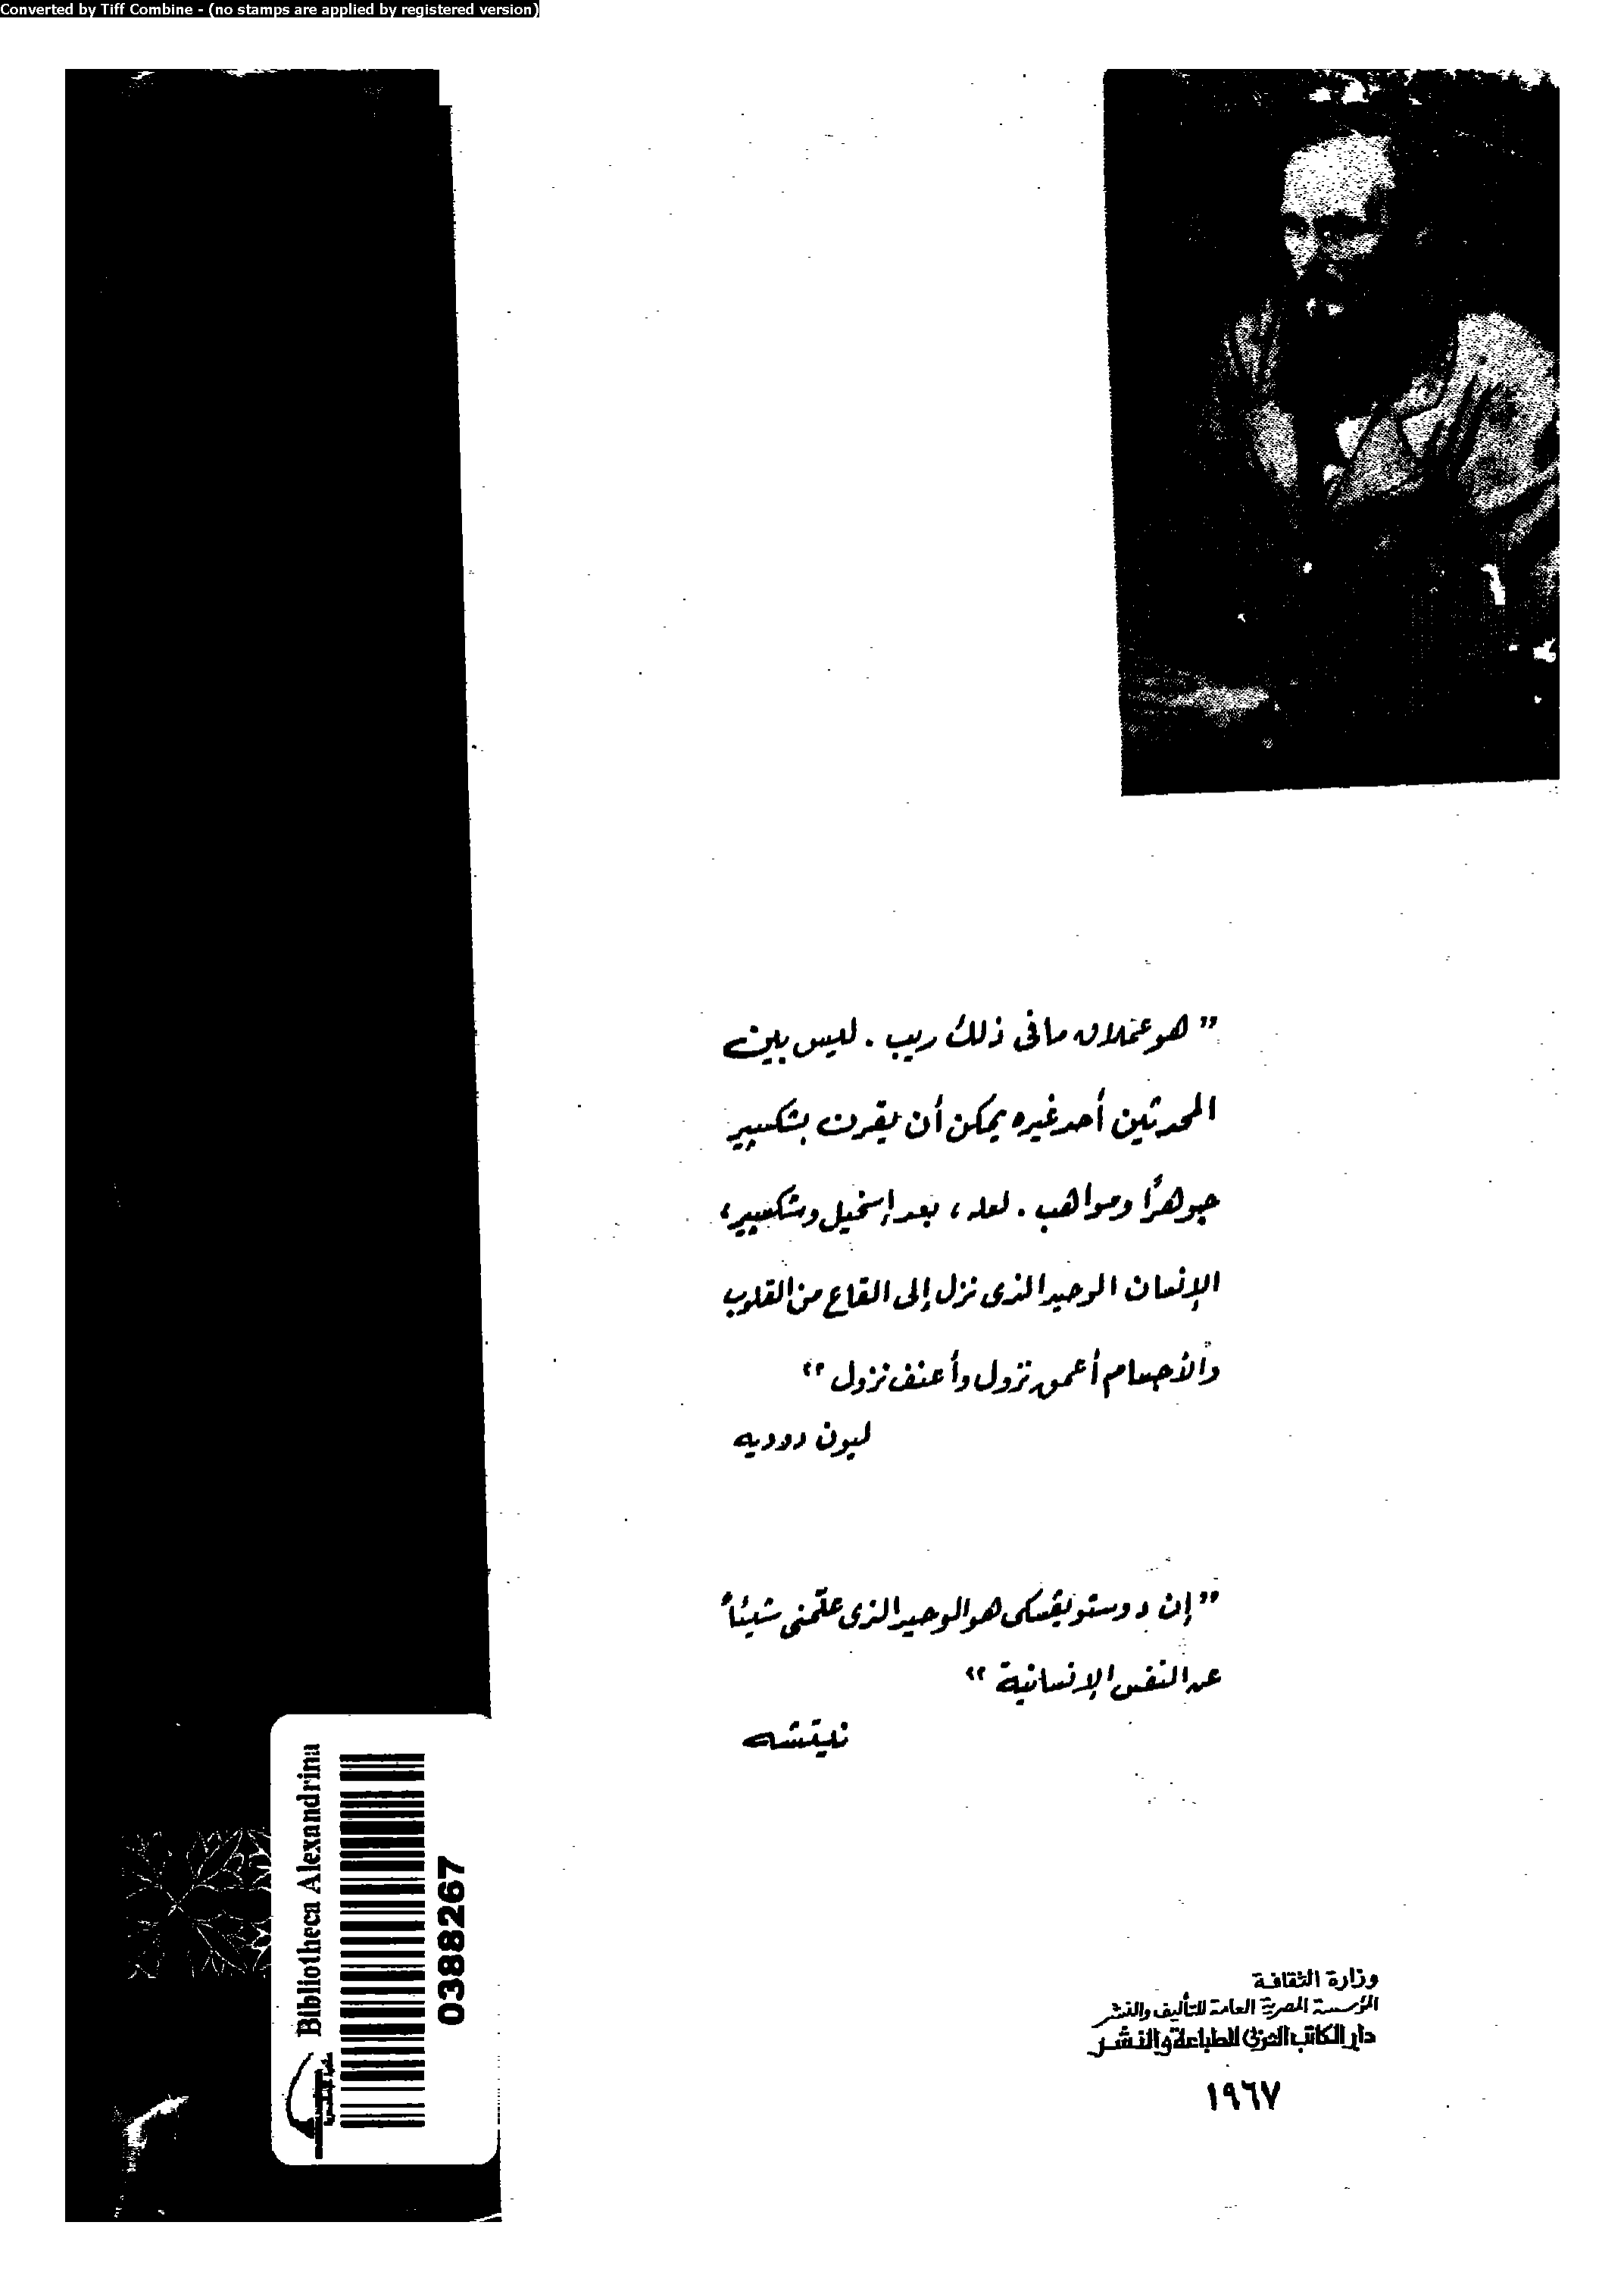 Converted by Tiff Combine - (no stamps are applied by registered version)
” هو عملاق ما فى ذلك ريب . ليس بين
المحدثين أحد غيره يمكن أن يقرن بشكسبير
جوهرًا ومواهب . لعله ، بعد إسخيل وشكسبير ،
الإنسان الوحيد الذى نزل إلى القاع من القلوب
والأجسام أعمق نزول وأعنف نزول “
ليون دوديه
” إن دوستويفسكى هو الوحيد الذى علّمنى شيئاً
عن النفس الإنسانية “
نيتشه
Bibliotheca Alexandrina
0388267
وزارة الثقافة
المؤسسة المصرية العامة للتأليف والنشر
دار الكاتب العربى للطباعة والنشر
١٩٦٧